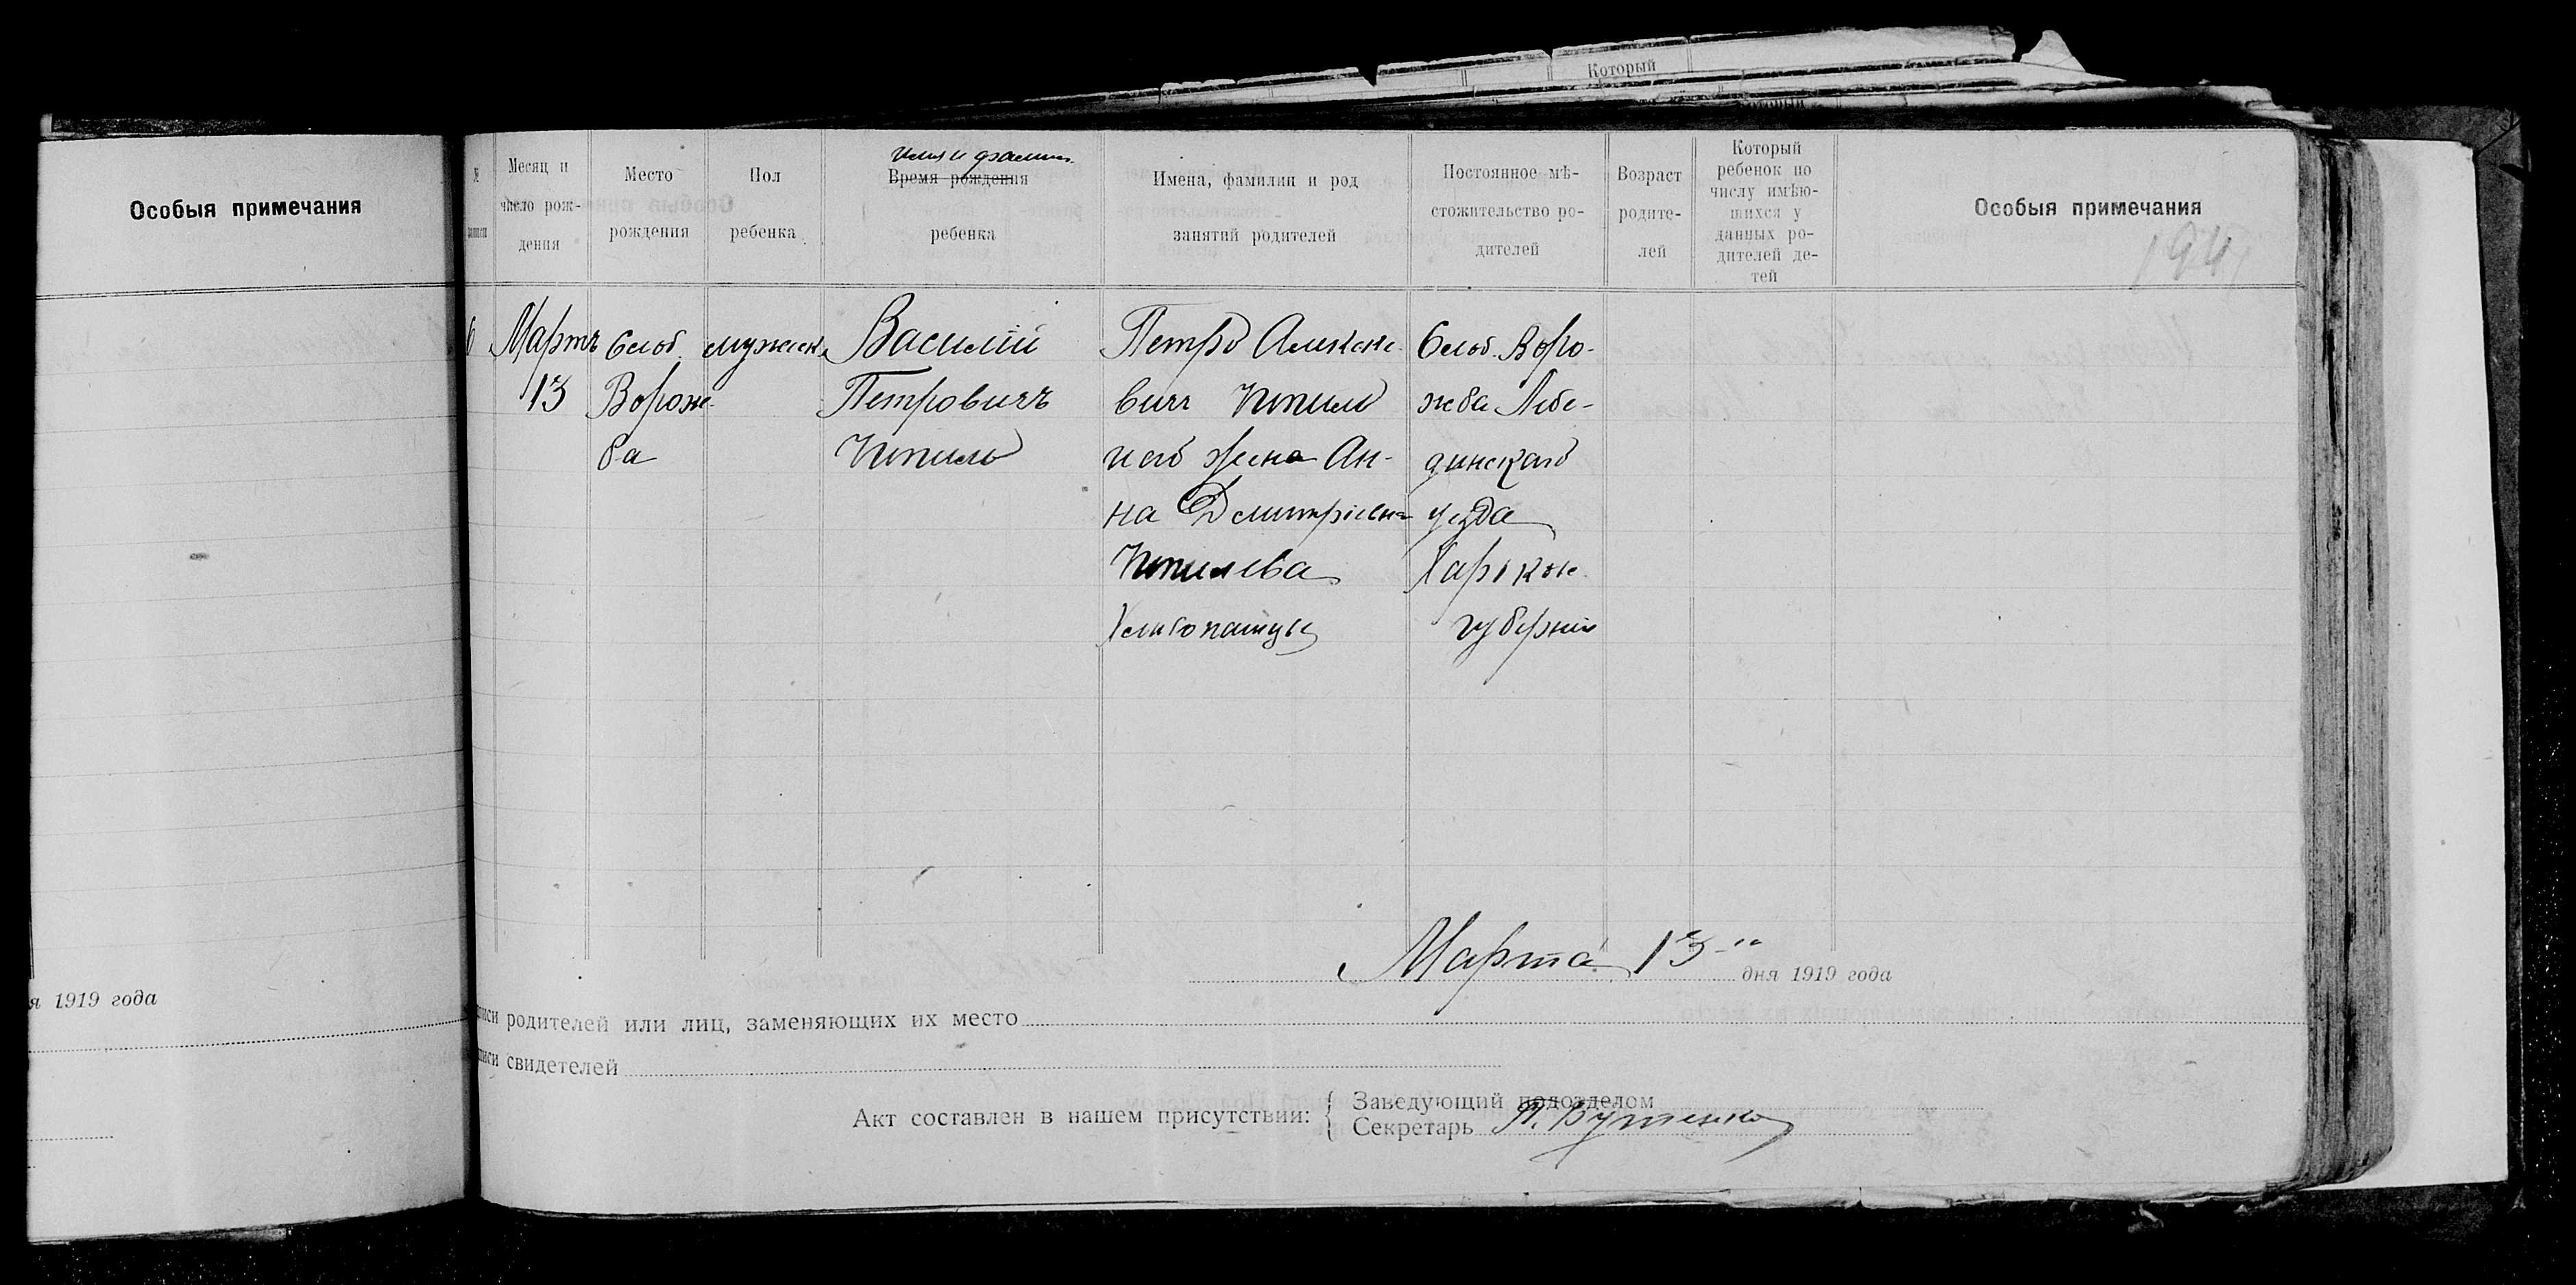 Который
Особыя примечания
я 1919 года
№
Месяц и
число рож-
дения
Место
рождения
Пол
ребенка
Имя и фамил.
Время рождения
ребенка
Имена, фамилии и род
занятий родителей
Постоянное мѣ-
стожительство ро-
дителей
Возраст
родите-
лей
Который
ребенок по
числу имѣю-
шихся у
данных ро-
дителей де-
тей
Особыя примечания
194
6
Мартъ
13
Слоб.
Ворож-
ба
мужеск.
Василій
Петровичъ
Петро Алексе-
вич
его жена Ан-
на Дмитріевна
Хлибопашцы
Слоб. Воро-
жба Лебе-
динскаго
уезда
Харькок.
губерніи
Марта 13-го дня 1919 года
писи родителей или лиц, заменяющих их место
писи свидетелей
Акт составлен в нашем присутствии:
Заведующий подотделом
Секретарь